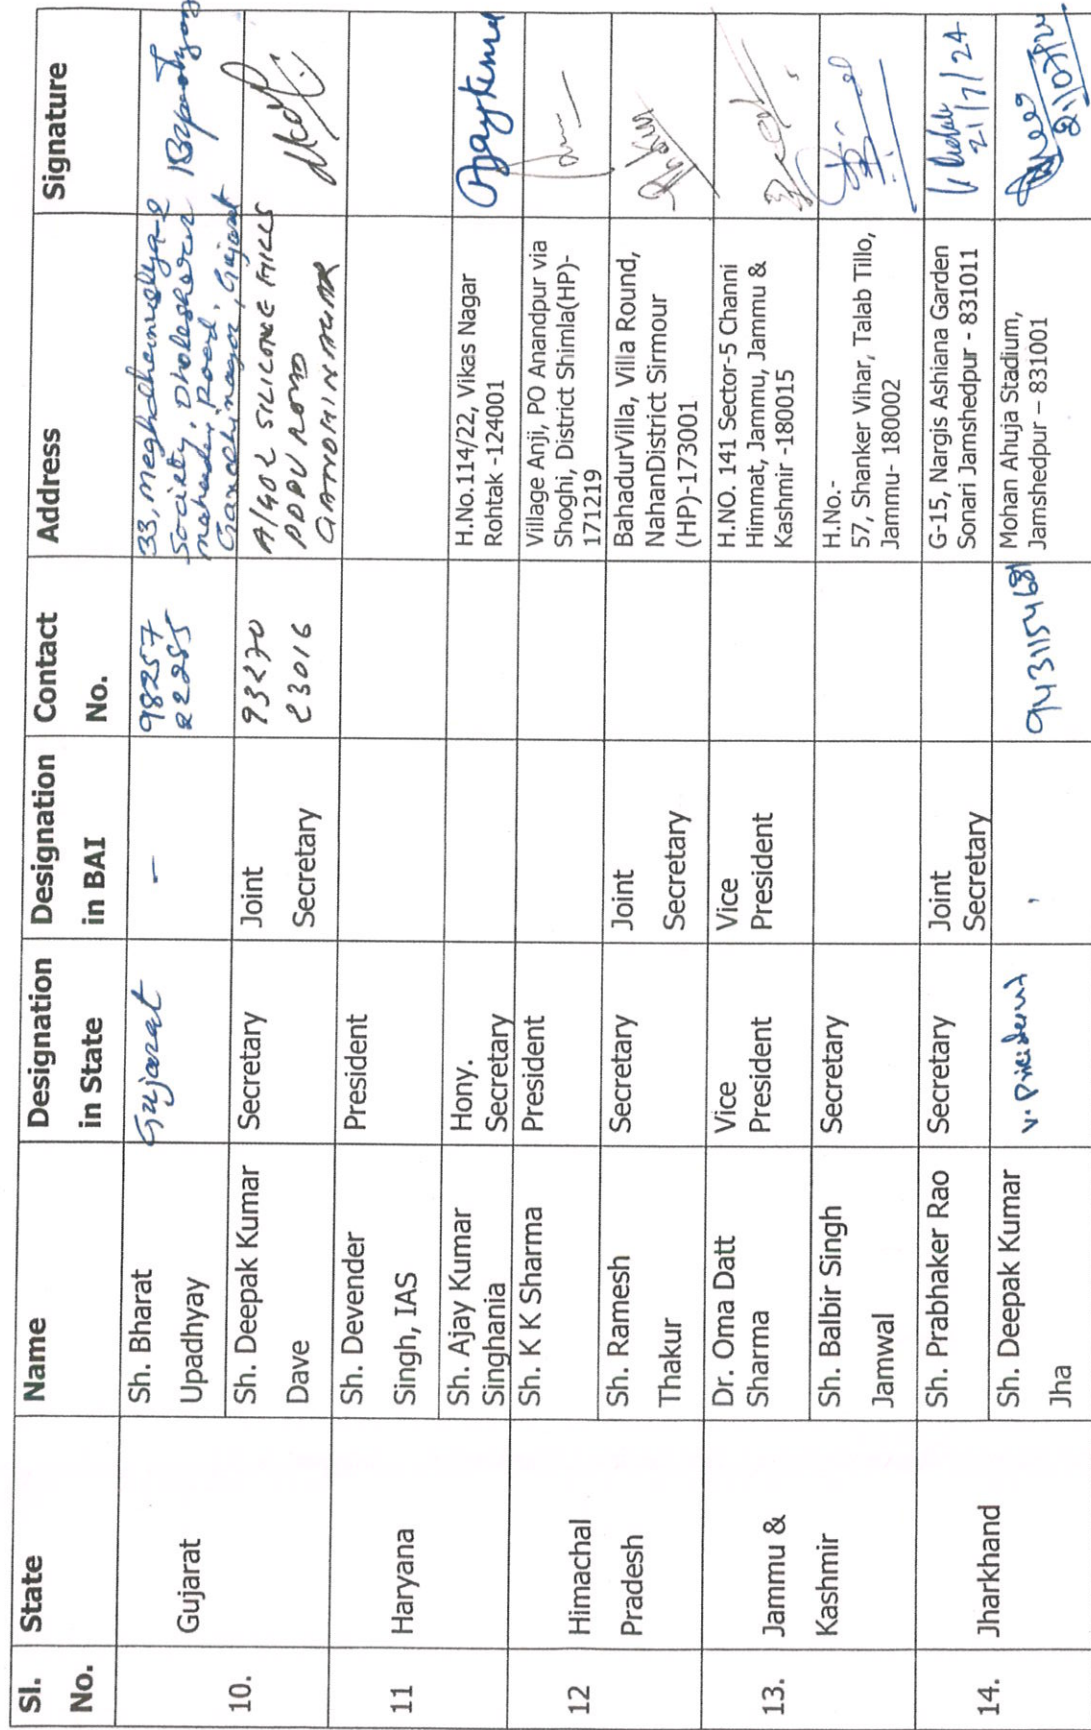 Sl. No. State Name Designation in State Designation in BAI Contact No. Address Signature
10. Gujarat
Sh. Bharat Upadhyay
Gujarat
-
98257
22285
33,
Society,
Road,
Gandhinagar, Gujarat
Sh. Deepak Kumar Dave
Secretary
Joint Secretary
93270
23016
SILICONE
PDPU ROAD
GANDHINAGAR
11 Haryana
Sh. Devender Singh, IAS
President
Sh. Ajay Kumar Singhania
Hony. Secretary
H.No.114/22, Vikas Nagar
Rohtak -124001
12 Himachal Pradesh
Sh. K K Sharma
President
Village Anji, PO Anandpur via
Shoghi, District Shimla(HP)-
171219
Sh. Ramesh Thakur
Secretary
Joint Secretary
BahadurVilla, Villa Round,
NahanDistrict Sirmour
(HP)-173001
13. Jammu & Kashmir
Dr. Oma Datt Sharma
Vice President
Vice President
H.NO. 141 Sector-5 Channi
Himmat, Jammu, Jammu &
Kashmir -180015
Sh. Balbir Singh Jamwal
Secretary
H.No.-
57, Shanker Vihar, Talab Tillo,
Jammu- 180002
14. Jharkhand
Sh. Prabhaker Rao
Secretary
Joint Secretary
G-15, Nargis Ashiana Garden
Sonari Jamshedpur - 831011
21/7/24
Sh. Deepak Kumar Jha
V. President
Mohan Ahuja Stadium,
Jamshedpur – 831001